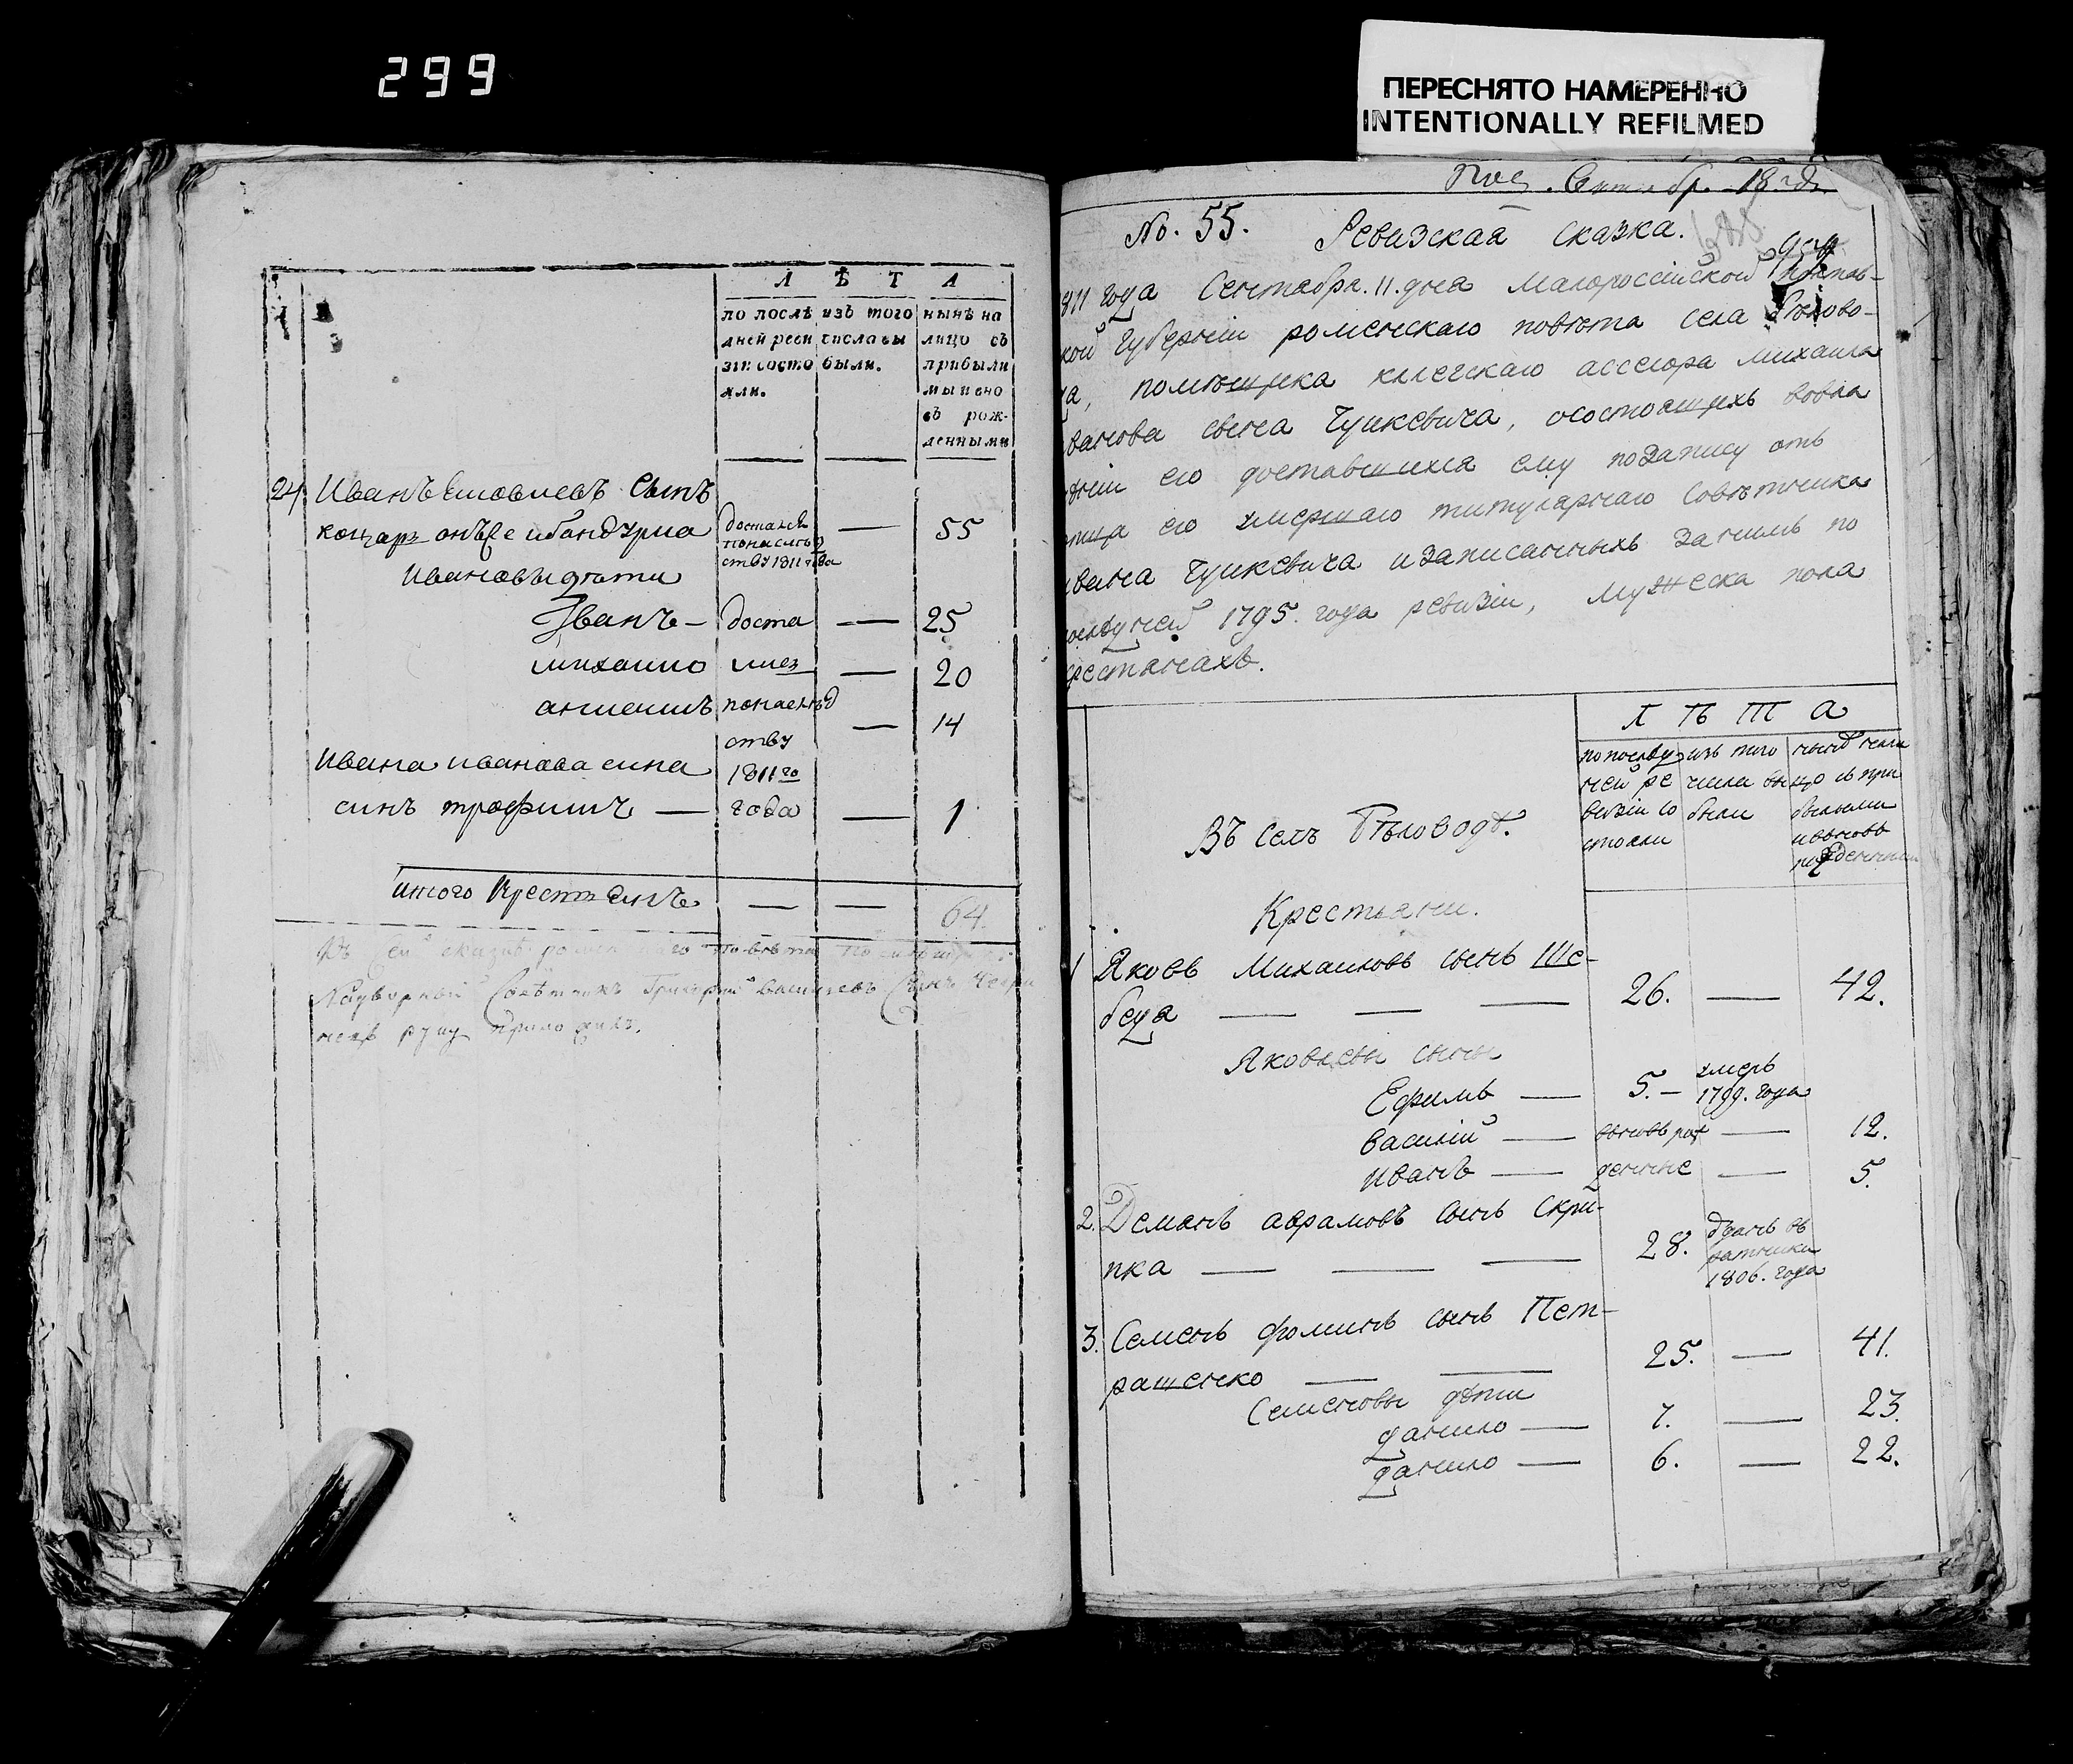 299
ПЕРЕСНЯТО НАМЕРЕННО
INTENTIONALLY REFILMED
Л Ѣ Т А
по послѣ
дней реви
зіи состо
яли.
изъ того
числа вы
были.
нынѣ на
лицо съ
прибыли
ми и вно
въ рож-
денными
24 Иванъ сынъ
55
достался
по наслѣд
ству 1811 года
Ивановы дѣти
Иванъ — доста — 25
михаило лись — 20
понаслѣд — 14
ству
Ивана иванова сина 1811го
синъ трофимъ — года — 1
итого крестьянъ — — 64.
Въ сей сказкѣ повѣта
Надворный Совѣтникъ Григорій Васильевъ Сынъ
руку приложилъ.
Сентябр. 18
No. 55. Ревизская сказка.
811 года Сентября. 11. дня Малороссійской Полтав-
кой Губерніи роменскаго повѣта села Бѣлово-
да, помѣщика ассесора михаила
ванова сына Чушкевича, осостоящихъ вовла
дѣніи его доставшихся ему по отъ
отца его умершаго титулярнаго совѣтника
ивана Чушкевича изаписанныхъ занимъ по
последней 1795. года ревизіи, мужеска пола
крестьянахъ.
Л Ѣ Т А
по последу
ней ре
визіи со
стояли
изъ того
числа вы
были
нынѣ нали
цо съ при
былыми
ивновь
рожденными
Въ селѣ Бѣловодѣ.
Крестьяни.
1 Яковъ Михаиловъ сынъ Ше-
беда — — — 26. — 42.
Яковлевы сыны
Ефимъ — 5. — умеръ
1799. года
василій — вновь рож — 12.
иванъ — денные — 5.
2. Демянъ аврамовъ сынъ Скри-
пка — — — 28. отданъ въ
ратники
1806. года
3. Семенъ фоминъ сынъ Пет-
рашенко — — 25. — 41.
Семеновы дѣти
данило — 7. — 23.
данило — 6. — 22.